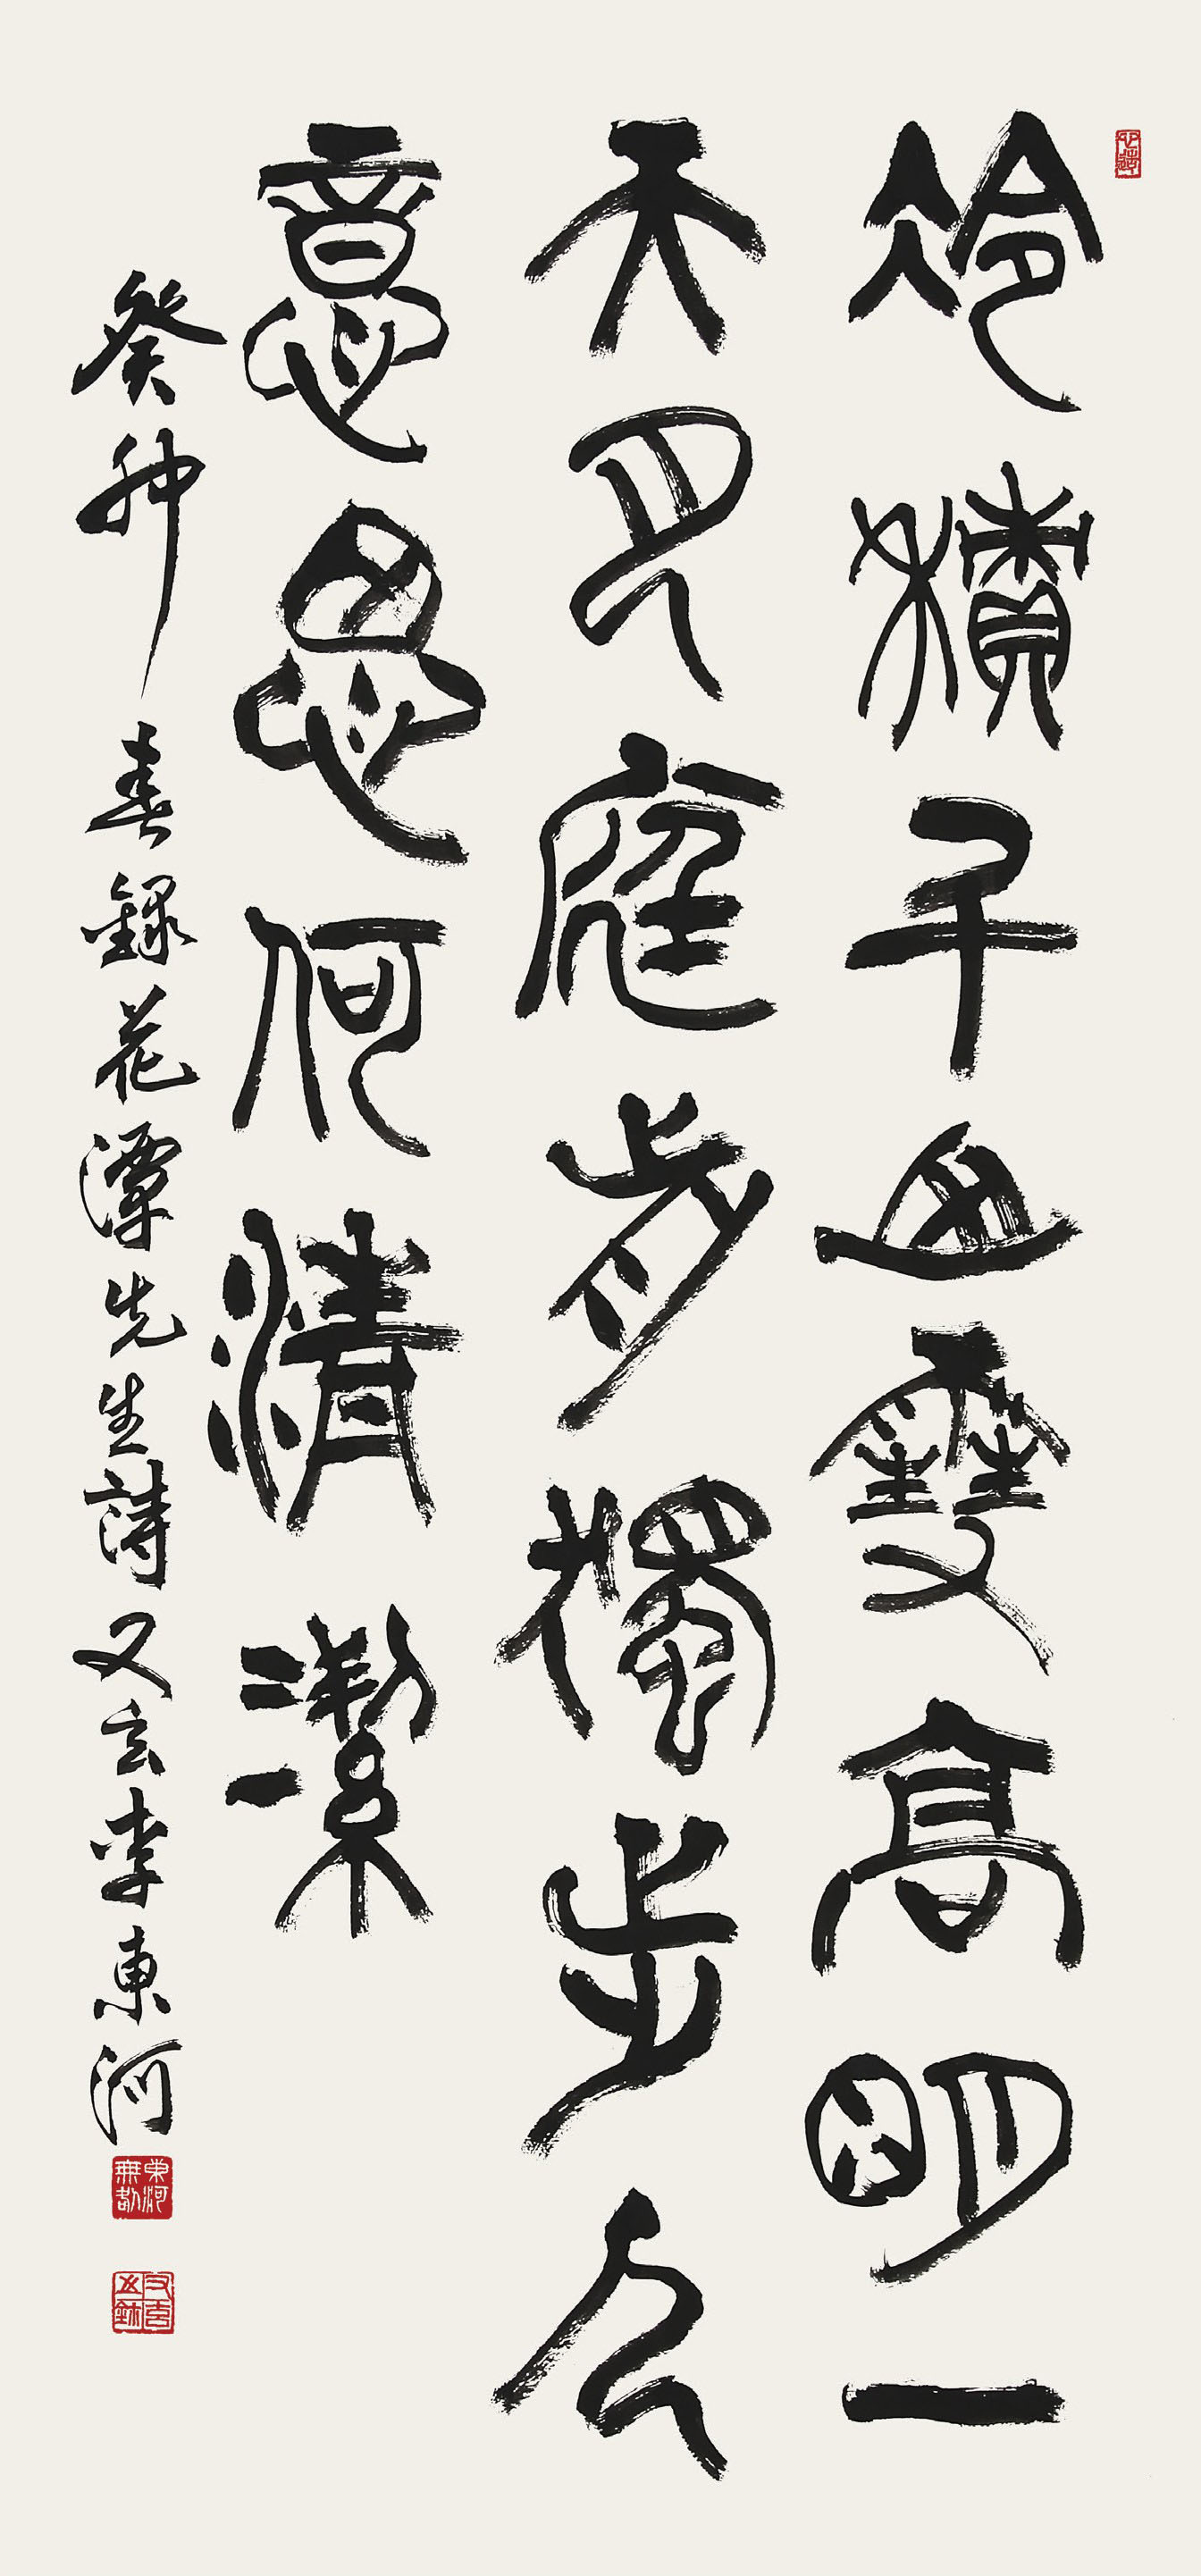 冷積千山雪高明一
天月庭前獨步人
意思何清潔
癸卯春錄花潭先生詩又玄李東河